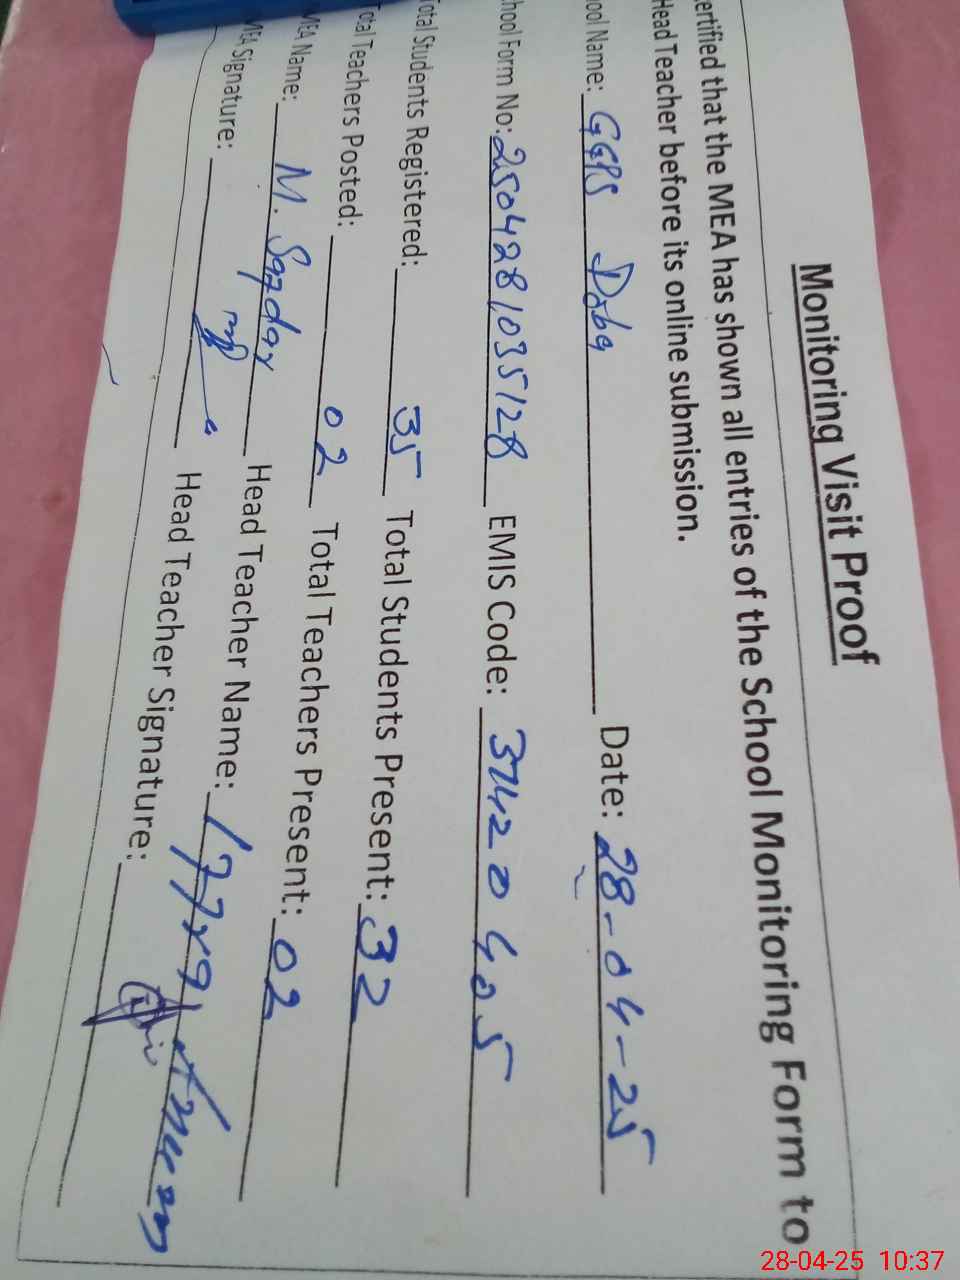 Monitoring Visit Proof
ertified that the MEA has shown all entries of the School Monitoring Form to
Head Teacher before its online submission.
ool Name: GGPS Doba Date: 28-04-25
hool Form No: 2504281035128 EMIS Code: 37420405
otal Students Registered: 35 Total Students Present: 32
otal Teachers Posted: 02 Total Teachers Present: 02
MEA Name: M. Safdar Head Teacher Name:
MEA Signature: Head Teacher Signature:
28-04-25 10:37